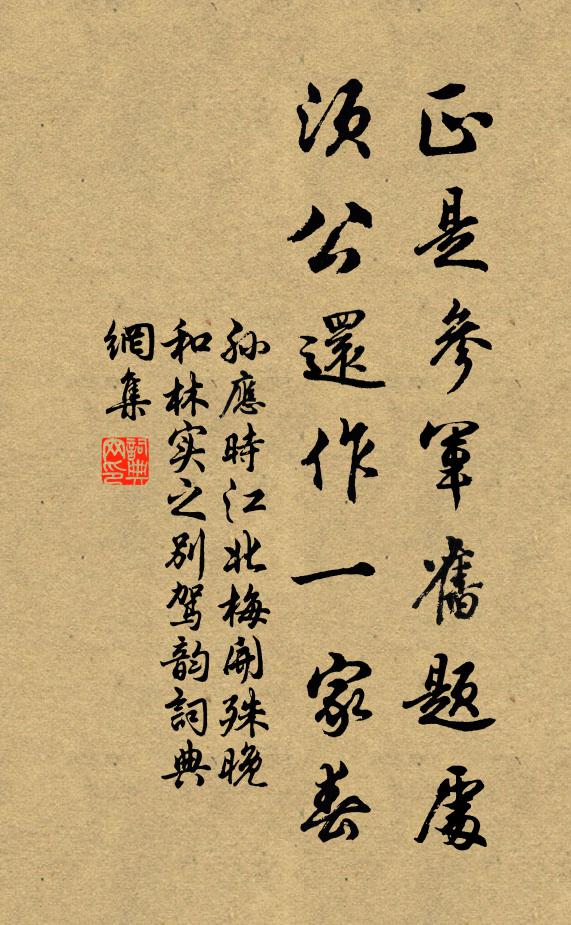 正是參軍舊題處
須公還作一家春
孙應時江北梅開殊晚
和林实之別駕韵詞典
網集
詞典
网印